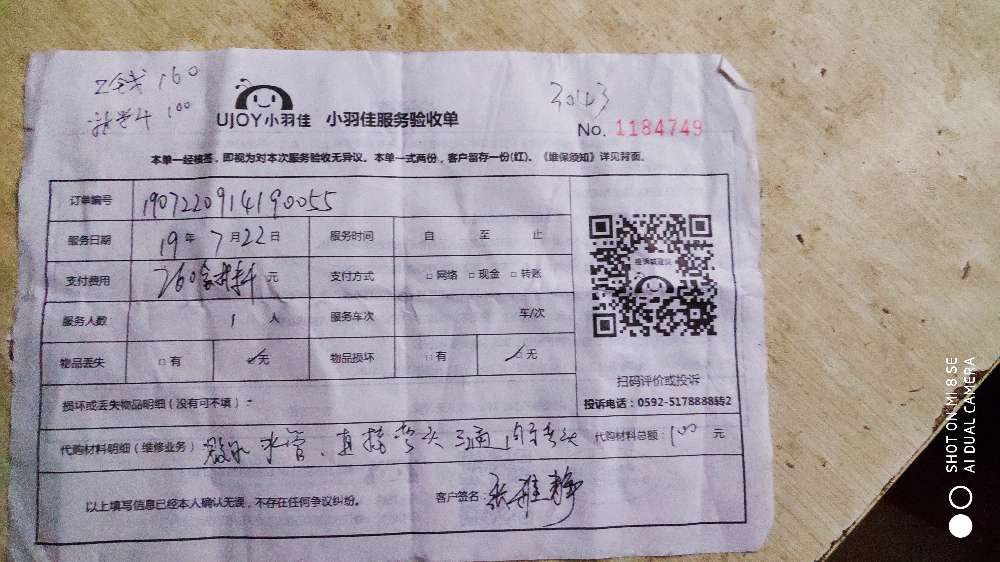 工钱 160
材料 100
30143
UJOY小羽佳 小羽佳服务验收单
No. 1184749
本单一经核签，即视为对本次服务验收无异议。本单一式两份，客户留存一份(红)。《维保须知》详见背面。
订单编号 1907220914190055
服务日期 19年 7月22日 服务时间 自 至 止
支付费用 260含材料 元 支付方式 □网络 □现金 □转账
服务人数 1 人 服务车次 车/次
物品丢失 □有 ☑无 物品损坏 □有 ☑无
损坏或丢失物品明细（没有可不填）
扫码评价或投诉
投诉电话：0592-5178888转2
代购材料明细（维修业务） 水管、直接弯头三通内牙弯头 代购材料总额：100 元
以上填写信息已经本人确认无误，不存在任何争议纠纷。 客户签名：张雅静
SHOT ON MI 8 SE
AI DUAL CAMERA